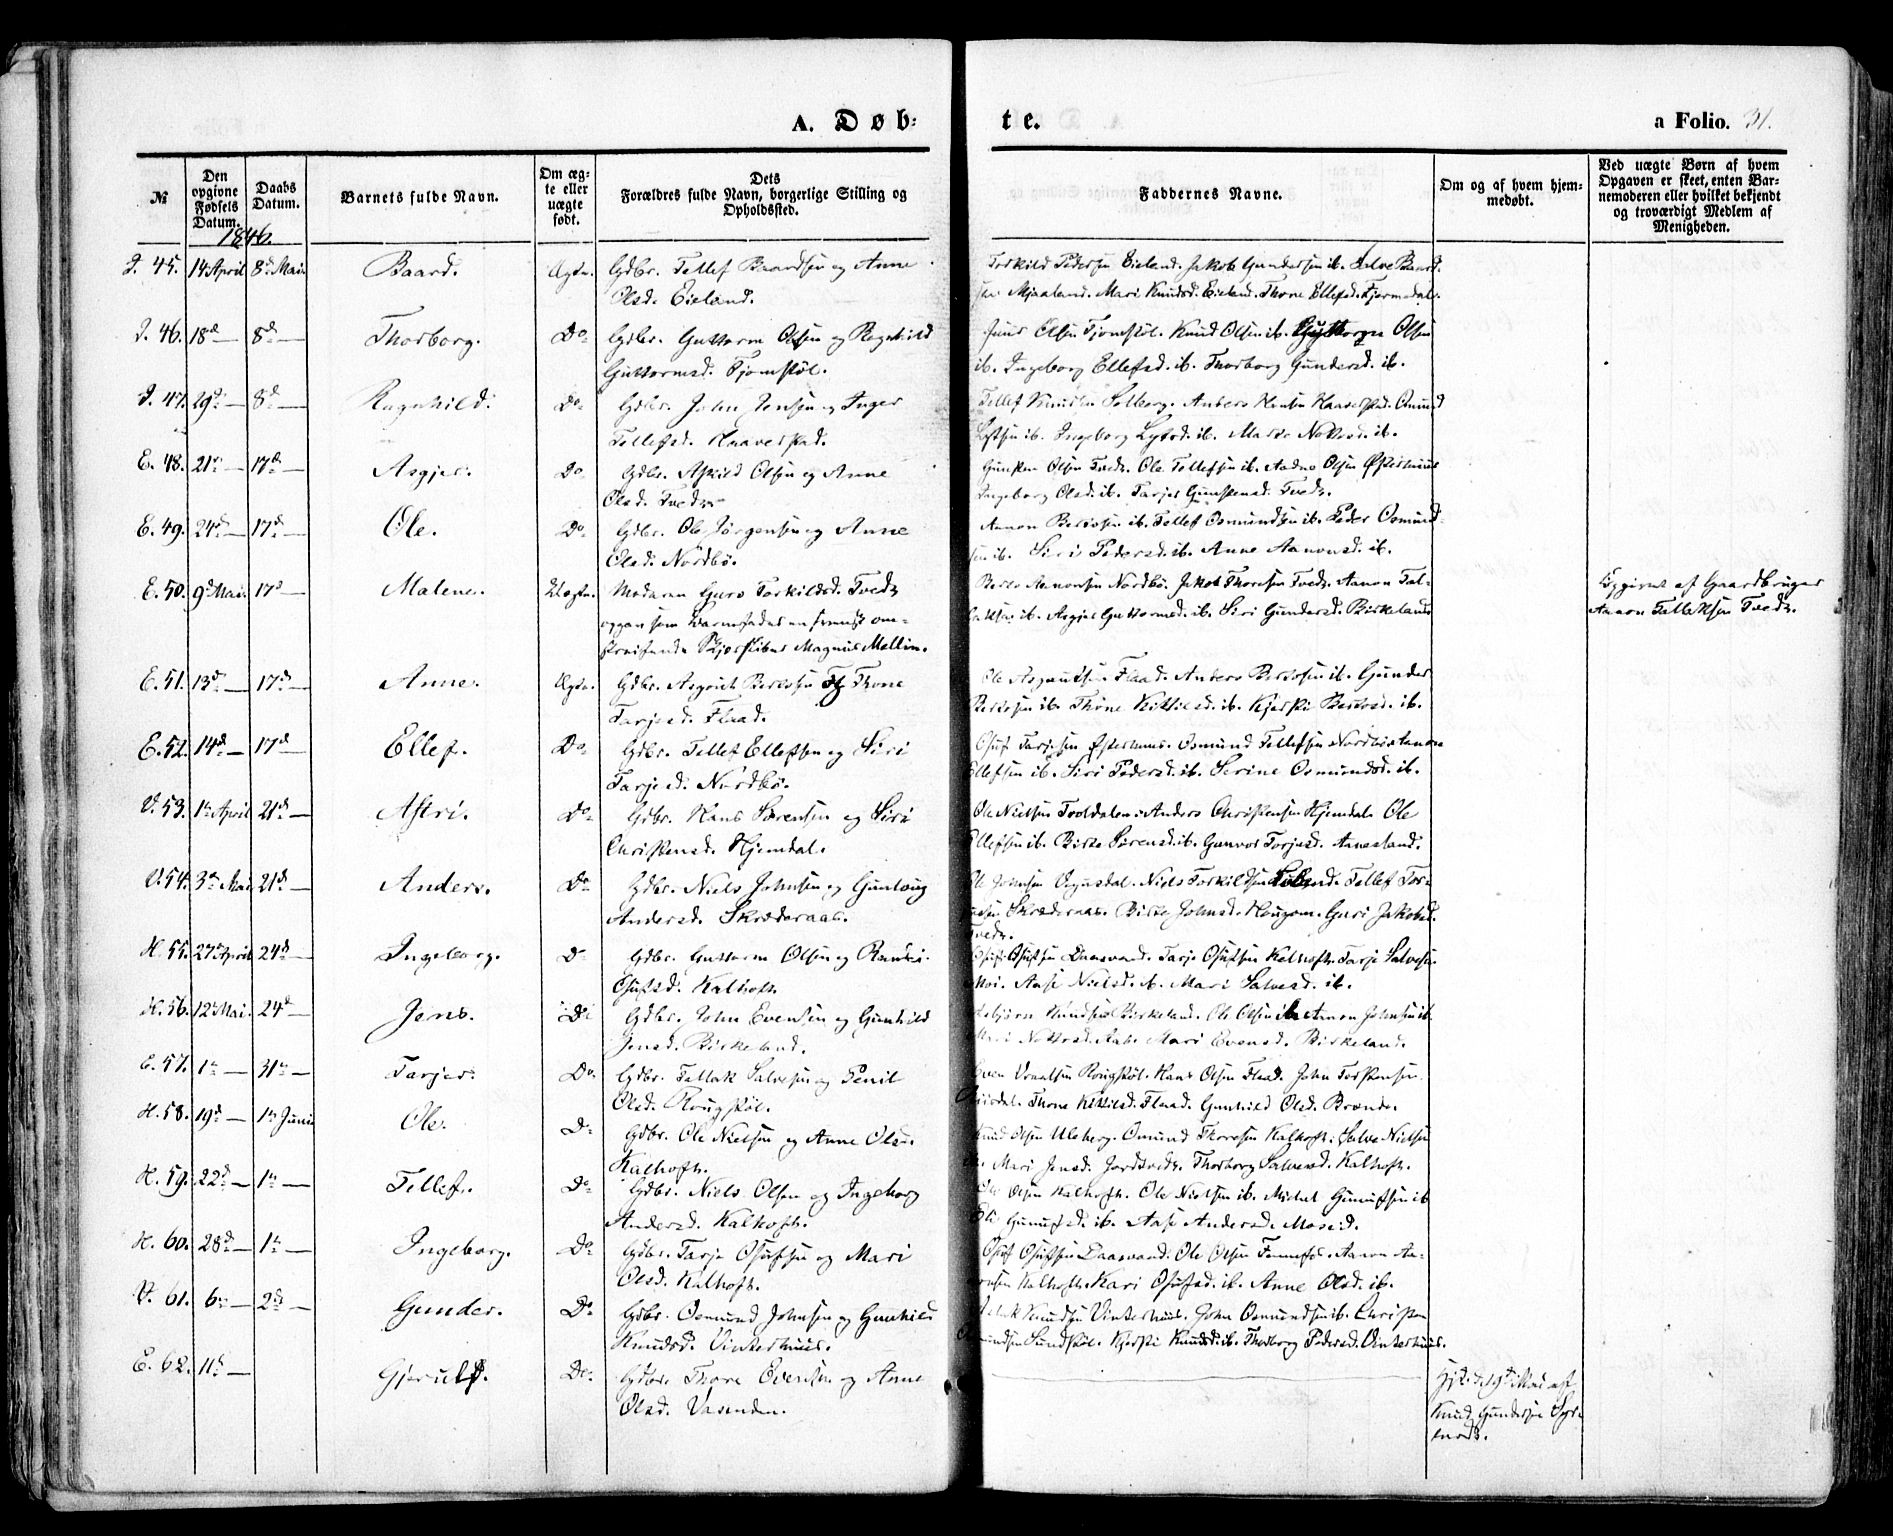 A. Døb=
te.
a Folio. 31.
№
Den opgivne Fødsels Datum.
Daabs Datum.
Barnets fulde Navn.
Om ægte eller uægte født.
Dets Forældres fulde Navn, borgerlige Stilling og Opholdssted.
Faddernes Navne.
Om og af hvem hjemmedøbt.
Ved uægte Børn af hvem Opgaven er skeet, enten Barnemoderen eller hvilket bekjendt og troværdigt Medlem af Menigheden.
1846.
45. 14 April 8d Mai. Baard. Ægte. Gdbr. Tellef Baardsen og Anne
Olsd. Eieland.
Torkild Pedersen Eieland. Jakob Gundersen ib. Salve Baard-
sen Mjaaland. Mari Knudsd. Eieland. Thone Ellefsd.
46. 18d 8d Thorborg. Do Gdbr. Guttorm Olsen og Ragnhild
Guttormsd. Tjomstøl.
Olsen Tjomstøl. Knud Olsen ib. Guttorm Olsen
ib. Ingeborg Ellefsd. ib. Thorborg Gundersd. ib.
47. 29d 8d Ragnhild. Do Gdbr. John Jensen og Inger
Tellefsd. Haaverstad.
Tellef Knudsen Solberg. Anders Hansen Haaverstad. Osmund
ib. Ingeborg ib.
E. 48. 21 17d Asgjer. Do Gdbr. Askild Olsen og Anne
Olsd. Tvedt.
Olsen Tvedt. Ole Tellefsen ib. Aadne Olsen Østerhuus
Ingeborg Olsd. ib. Tvedt.
E. 49. 24d 17d Ole. Do Gdbr. Ole Jørgensen og Anne
Olsd. Nordbø.
Aanon Berosen ib. Tellef Osmundsen ib. Peder Osmund-
sen ib. Siri Pedersd. ib. Anne Aanonsd. ib.
E. 50. 9d Mai. 17d Malene. Uægte. Moderen Guro Torkildsd. Tvedt
opgav som Barnefader en svensk om-
streifende Magnus Mellin.
Aanonsen Nordbø. Jakob Thoresen Tvedt. Aanon Tal-
leksen ib. Asgjer Guttormsd. ib. Siri Gundersd. Birkeland.
Opgivet af Gaardbruger
Aanon Talleksen Tvedt.
E. 51. 13d 17d Anne. Ægte. Gdbr. Asgout Berosen og Thone
Tarjesd. Flaad.
Ole Asgoutsen Flaad. Anders Berosen ib. Gunder
Berosen ib. Thone Kittilsd. ib. Berosd. ib.
E. 52. 14d 17d Ellef. Do Gdbr. Tellef Ellefsen og Siri
Tarjesd. Nordbø.
Osuf Tarjesen Østerhuus. Osmund Tellefsen Nordbø. Aanon
Ellefsen ib. Siri Pedersd. ib. Serine Osmundsd. ib.
V. 53. 1 April 21d Astri. Do Gdbr. Hans Sørensen og Siri
Christensd. Hjemdal.
Ole Nielsen Toldalen. Anders Christensen Hjemdal. Ole
Ellefsen ib. Birte Sørensd. ib. Gunvor Torjusd. Aanesland.
V. 54. 3 Mai 21d Anders. Do Gdbr. Niels Johnsen og Gunloug
Andersd. Skræderaas.
Ole Johnsen Vegusdal. Niels Torkildsen Tellef
Skræderaas. Birte Johnsd. Hougom. Guri Jakobsd.
Tvedt.
H. 55. 27 April 24d Ingeborg. D Gdbr. Guttorm Olsen og Randi
Osufsd. Kalhoft.
Osufsen Daasvand. Tarje Osufsen Kalhoft. Tarje Salvesen
Moi. Aase Nielsd. ib. Mari Salvesd. ib.
H. 56. 12 Mai. 24d Jens. Do Gdbr. John Evensen og Gunhild
Jensd. Birkeland.
Knudsen Birkeland. Ole Olsen ib. Aanon Johnsen ib.
Mari Evensd. Birkeland.
E. 57. 1 31 Tarjer. Do Gdbr. Tellak Salvesen og Penil
Olsd. Rougstøl.
Even Rougstøl. Hans Olsen Flaad. John
Thone Kittilsd. Flaad. Gunhild Olsd.
H. 58. 19d 1 Juni Ole. D Gdbr. Ole Nielsen og Anne Olsd.
Kalhoft.
Knud Olsen Uleberg. Osmund Thoresen Kalhoft. Salve Nielsen
ib. Mari Jensd. Thorborg Salvesd. Kalhoft.
H. 59. 22d 1 Tellef. Do Gdbr. Niels Olsen og Ingeborg
Andersd. Kalhoft.
Ole Olsen Kalhoft. Ole Nielsen ib. Michel Gunufsen ib
Gunufsd. ib. Aase Andersd. Moseid.
H. 60. 28d 1 Ingeborg. Do Gdbr. Tarje Osufsen og Mari
Olsd. Kalhoft.
Osuf Osufsen Daasvand. Ole Olsen Aanon Aa-
nonsen Kalhoft. Kari Osufsd. ib. Anne Olsd. ib.
V. 61. 6 2d Gunder. Do Gdbr. Osmund Johnsen og Gunhild
Knudsd. Vinterhuus.
Knudsen Vinterhuus. John Osmundsen ib. Christen
Sundstøl. Kjersti Knudsd. ib. Thorborg Pedersd. Vinterhuus.
E. 62. 11 Gjerulf. Do. Gdbr. Thore Evensen og Anne
Olsd. Vasenden.
Hjd. d. 19d Mai af
Knud Gundersen